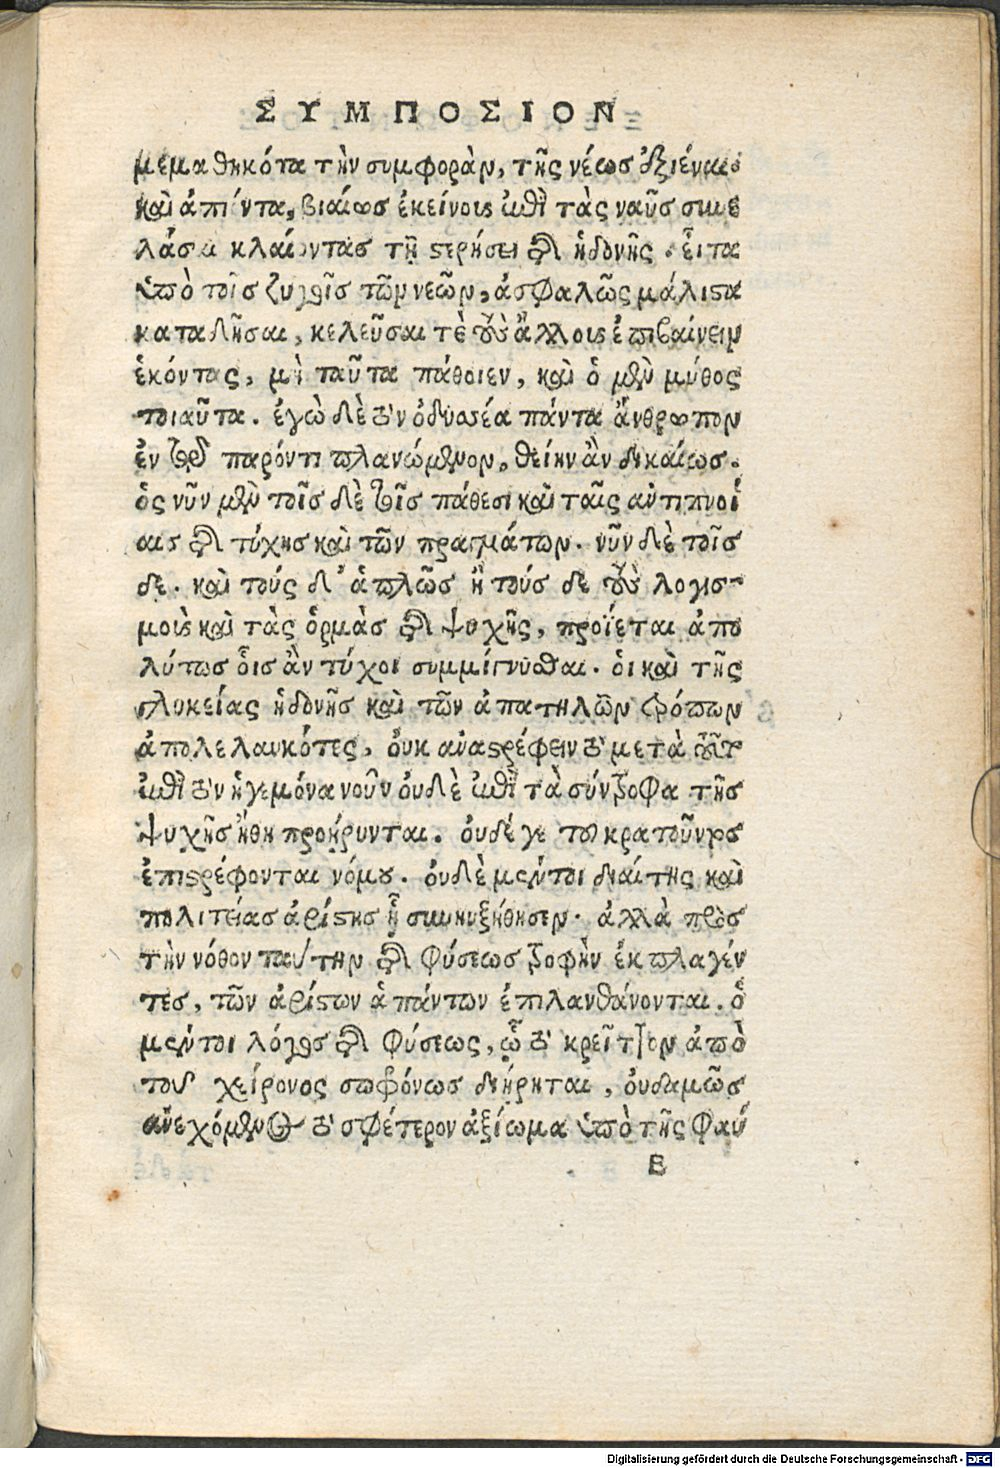 ΣΥΜΠΟΣΙΟΝ
μεμαθηκότα τὴν συμφορὰν, τῆς νέωσ ἐξιέναι
καὶ ἀπιόντα, βιαίως ἐκείνους ἐπὶ τὰς ναῦς συνε
λάσαι κλαίοντας τῇ στερήσει τῆς ἡδονῆς. εἶτα
ὑπὸ τοῖς ζυγοῖς τῶν νεῶν, ἀσφαλῶς μάλιστα
καταδῆσαι, κελεῦσαι τὲ τοὺς ἄλλους ἐπιβαίνειν
ἑκόντας, μὴ ταῦτα πάθοιεν, καὶ ὁ μὲν μύθος
τοιαῦτα. ἐγὼ δὲ τὸν ὀδυσσέα πάντα ἄνθρωπον
ἐν τῷ παρόντι πλανώμενον, θείην ἂν δικαίως.
ὃς νῦν μὲν τοῖς δὲ τοῖς πάθεσι καὶ ταῖς ἀντιπνοί
αις τῆς τύχης καὶ τῶν πραγμάτων. νῦν δὲ τοῖσ
δε. καὶ τούς δ' ἁπλῶς ἢ τούσ δε τοὺς λογισ-
μοὺς καὶ τὰς ὁρμὰς τῆς ψυχῆς, προΐεται ἀπο
λύτως οἷς ἂν τύχοι συμμίγνυσθαι. οἱ καὶ τῆς
γλυκείας ἡδονῆς καὶ τῶν ἀπατηλῶν τρόπων
ἀπολελαυκότες, οὐκ ἀναστρέφειν τὸ μετὰ ταῦτα
ἐπὶ τὸν ἡγεμόνα νοῦν οὐδὲ ἐπὶ τὰ σύντροφα τῆς
ψυχῆς ἤθη προῄρυνται. οὐδέ γε τοῦ κρατοῦντος
ἐπιστρέφονται νόμου. οὐδὲ μέντοι διαίτης καὶ
πολιτείας ἀρίστης ᾗ συνηυξήθησεν. ἀλλὰ πρὸς
τὴν νόθον ταύτην τῆς φύσεως τροφὴν ἐκπλαγέν
τες, τῶν ἀρίστων ἁπάντων ἐπιλανθάνονται. ὁ
μέντοι λόγος τῆς φύσεως, ᾧ τὸ κρεῖττον ἀπὸ
τοῦ χείρονος σωφρόνως διῄρηται, οὐδαμῶς
ἀνεχόμενος τὸ σφέτερον ἀξίωμα ὑπὸ τῆς φαύ
B
Digitalisierung gefördert durch die Deutsche Forschungsgemeinschaft - DFG